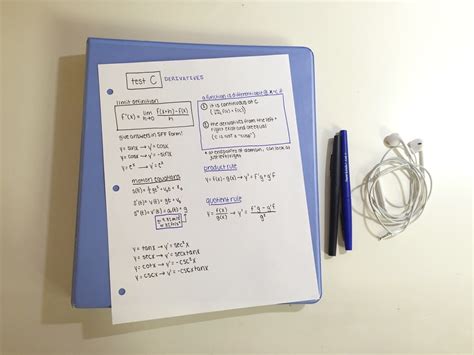 test C DERIVATIVES
limit definition
f'(x) = lim h→0 f(x+h)-f(x) / h
give answers in SPF form!
y = sinx → y' = cosx
y = cosx → y' = -sinx
y = eˣ → y' = eˣ
motion equations
s'(t) = v(t) = gt + v₀
s"(t) = v'(t) = a(t) = g
y = tanx → y' = sec²x
y = secx → y' = secxtanx
y = cotx → y' = -csc²x
y = cscx → y' = -cscxtanx
a function is differentiable @ x=c if
① it is continuous at C
② the derivatives from the left + right exist and are equal
(c is not a "cusp")
* at endpoints of domain, can look at just left/right
product rule
y = f(x) · g(x) → y' = f'g + g'f
quotient rule
y = f(x) / g(x) → y' = f'g - g'f / g²